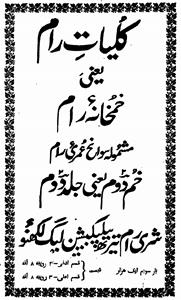 کلیاتِ رام
یعنی
خمخانۂ رام
مشمولہ سوانح عمری رام
خم دوم یعنی جلد دوم
شری رام تیرتھ پبلیکیشن لیگ لکھنؤ
بار سوم ایک ہزار
قیمت